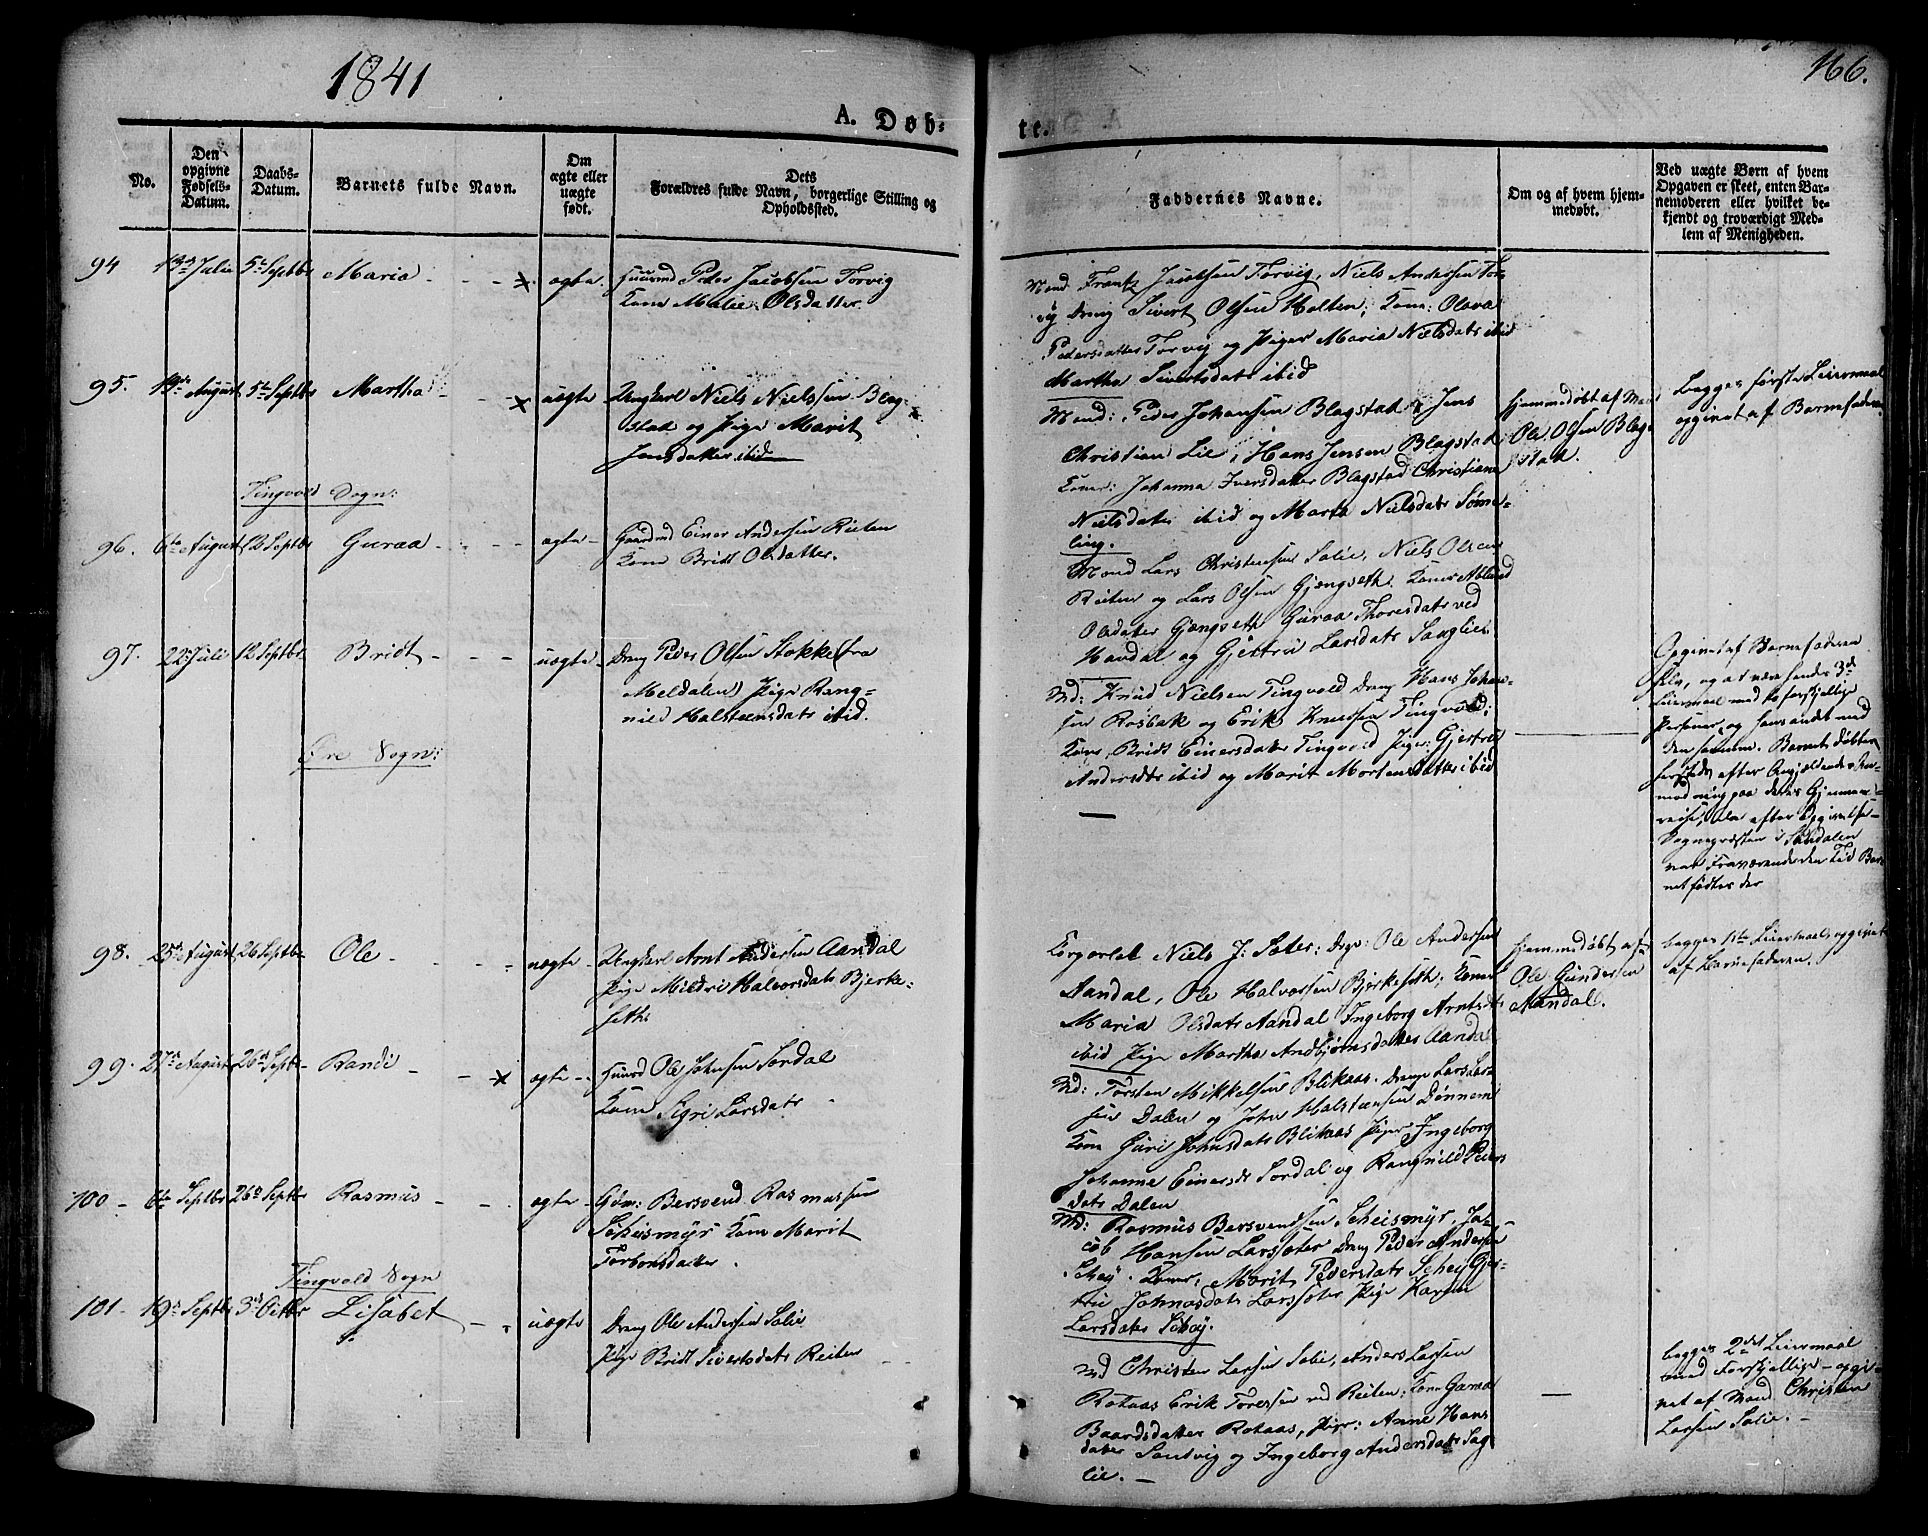 1841
166.
A. Døb-
te.
No.
Den
opgivne
Fødsels-
Datum.
Daabs-
Datum.
Barnets fulde Navn.
Om
ægte eller
uægte
født.
Dets
Forældres fulde Navn, borgerlige Stilling og
Opholdssted.
Faddernes Navne.
Om og af hvem hjem-
medøbt.
Ved uægte Børn af hvem
Opgaven er skeet, enten Bar-
nemoderen eller hvilket be-
kjendt og troværdigt Med-
lem af Menigheden.
94
Julie 5te Septbr
Maria
ægte
Huusmd Peder Jacobsen Torvig
Kone Malie Olsdatter
Mænd Frantz Jacobsen Torvig, Niels Andersen Tor-
vig Dreng Sivert Olsen Holten; Kone: Olava
Pedersdatter Torvig og Piger Maria Nielsdatr ibid
Martha Sivertsdatr ibid
95.
19de August 5te Septbr
Martha
uægte
Ungkarl Niels Nielssen Blag-
stad og Pige Marit
Jensdatter ibid
Mænd: Peder Johansen Blagstad, Jens
Christian Lie, Hans Jensen Blagstad
Koner: Johanna Iversdatter Blagstad Christiana
Nielsdatr ibid og Marta Nielsdatr Søme-
ling.
hjemmedøbt af Mand
Ole Olsen Blag-
stad.
begges første Leiermaal
opgivet af Barnefaderen
Tingvold Sogn:
96.
6te August 12 Septbr
Guraa
ægte
Gaardmd Einer Andersen Reiten
Kone Bridt Olsdatter.
Mænd Lars Christensen Salie, Niels Olsen
Reiten og Lars Olsen Gjængseth. Koner
Olsdatter Gjængseth Guraa Thoresdatr ved
Havdal og Gjertru Larsdatr Saglie.
97.
22 Juli 12 Septbr
Bridt
uægte
Dreng Peder Olsen Stokke (fra
Meldalen) Pige Rang-
nild Halsteensdatr ibid.
Md: Knud Nielsen Tingvold Dreng Hans Johan-
sen Rosbak og Erik Knudsen Tingvold;
Kone Bridt Einersdatr Tingvold Piger Gjertru
Andersdtr ibid og Marit Mortensdatter ibid
Opgivet af Barnefaderen
selv, og at være hendes 3die
Leiermaal med to forskjellige
Personer, og hans andet med
den samme. Barnet døbtes
hersteds efter Angjældendes An-
modning paa deres Gjennem-
reise, da efter Opgivelse
Sognepræsten i Sundalen
var Fraværende den Tid Bar-
net fødtes der
Øre Sogn:
98.
25de August 26 Septbr
Ole
uægte
Ungkarl Arnt Andersen Aandal
Pige Mildri Halvorsdatr Bjerke-
seth
Korporal Niels J: Sæter: Drge: Ole Andersen
Aandal, Ole Halvorsen Bjerkeseth; Koner
Maria Olsdatr Aandal Ingeborg Arntsdtr
ibid Pige Martha Andbjørnsdatter Aandal
hjemmedøbt af
Ole Gundersen
Aandal.
begges 1ste Leiermaal opgivet
af Barnefaderen.
99.
27de August 26de Septbr
Randi
ægte
Huusmd Ole Johnsen Sordal
Kone Sigri Larsdatr
Md: Torsten Mikkelsen Blikaas. Drenge Lars Lar-
sen Dalen og John Halsteensen Dønnem
Kone Guri Johnsdatr Blikaas Piger Ingeborg
Johanne Einersdr Sordal og Rangnild Peders
datr Dalen
100
6te Septbr 26de Septbr
Rasmus
ægte
Gdm: Bersvend Rasmussen
Scheismyr Kone Marit
Torbersdatter
Md: Rasmus Bersvendsen Scheismyr. Ja-
cob Hansen Larssæter Dreng Peder Andersen
Schey. Koner, Marit Pedersdatr Schey Gjer-
tru Johnasdatr Larssæter Pige Karen
Larsdatter Schøy.
Tingvold Sogn
101
19de Septbr 3die Octbr
Lisabet
uægte
Dreng Ole Andersen Salie
Pige Bridt Sivertsdatr Reiten
Md Christen Larsen Salie, Anders Larsen
Rotaas Erik Toressen ved Reiten; Kone
Baardsdatter Rotaas, Piger: Anne Hans
datter Sandvig og Ingeborg Andersdatr Sag
lie.
begges 2det Leiermaal
med Forskjellige - opgi-
vet af Mand Christen
Larsen Salie.